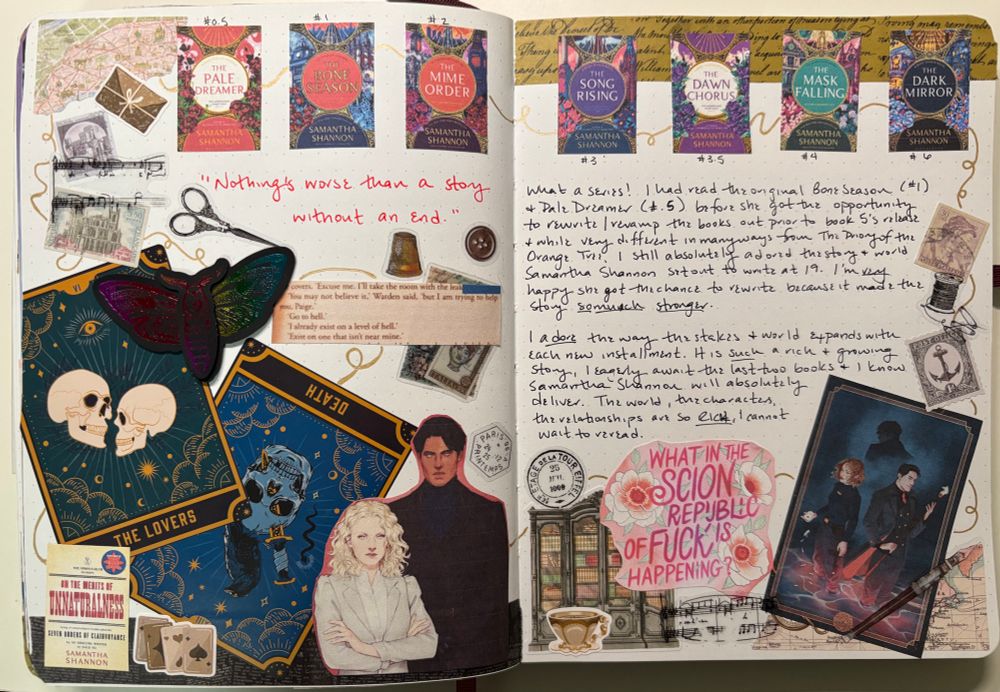 #0.5
#1
#2
THE
PALE
DREAMER
SAMANTHA
SHANNON
THE
BONE
SEASON
SAMANTHA
SHANNON
THE
MIME
ORDER
SAMANTHA
SHANNON
"Nothing's worse than a story
without an end."
overs. 'Excuse me. I'll take the room with the
'You may not believe it,' Warden said, 'but I am trying to help
you, Paige.'
'Go to hell.'
'I already exist on a level of hell.'
'Exist on one that isn't near mine.'
VI
THE LOVERS
DEATH
ON THE MERITS OF
UNNATURALNESS
SEVEN ORDERS OF CLAIRVOYANCE
SAMANTHA
SHANNON
PARIS
PRINTEMPS
THE
SONG
RISING
SAMANTHA
SHANNON
THE
DAWN
CHORUS
SAMANTHA
SHANNON
THE
MASK
FALLING
SAMANTHA
SHANNON
THE
DARK
MIRROR
SAMANTHA
SHANNON
#3
#3.5
#4
#6
What a series! I had read the original Bone Season (#1)
& Pale Dreamer (#.5) before she got the opportunity
to rewrite/revamp the books out prior to book 5's release
& while very different in many ways from The Priory of the
Orange Tree, I still absolutely adored the story & world
Samantha Shannon set out to write at 19. I'm very
happy she got the chance to rewrite because it made the
story so much stronger.
I adore the way the stakes & world expands with
each new installment. It is such a rich & growing
story, I eagerly await the last two books & I know
Samantha Shannon will absolutely
deliver. The world, the characters,
the relationships are so RICH, I cannot
wait to reread.
ETAGE DE LA TOUR EIFFEL
25
WHAT IN THE
SCION
REPUBLIC
OF FUCK IS
HAPPENING?